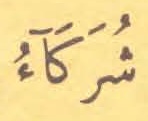 شُرَكَآءُ